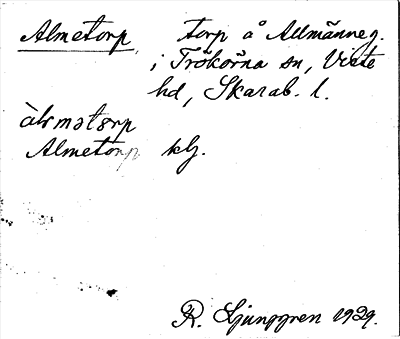 Almetorp, torp å Allmänneg.
i Trökörna sn, Viste
hd, Skarab. l.
àlmətørp
Almetorp klj.
R. Ljunggren 1929.